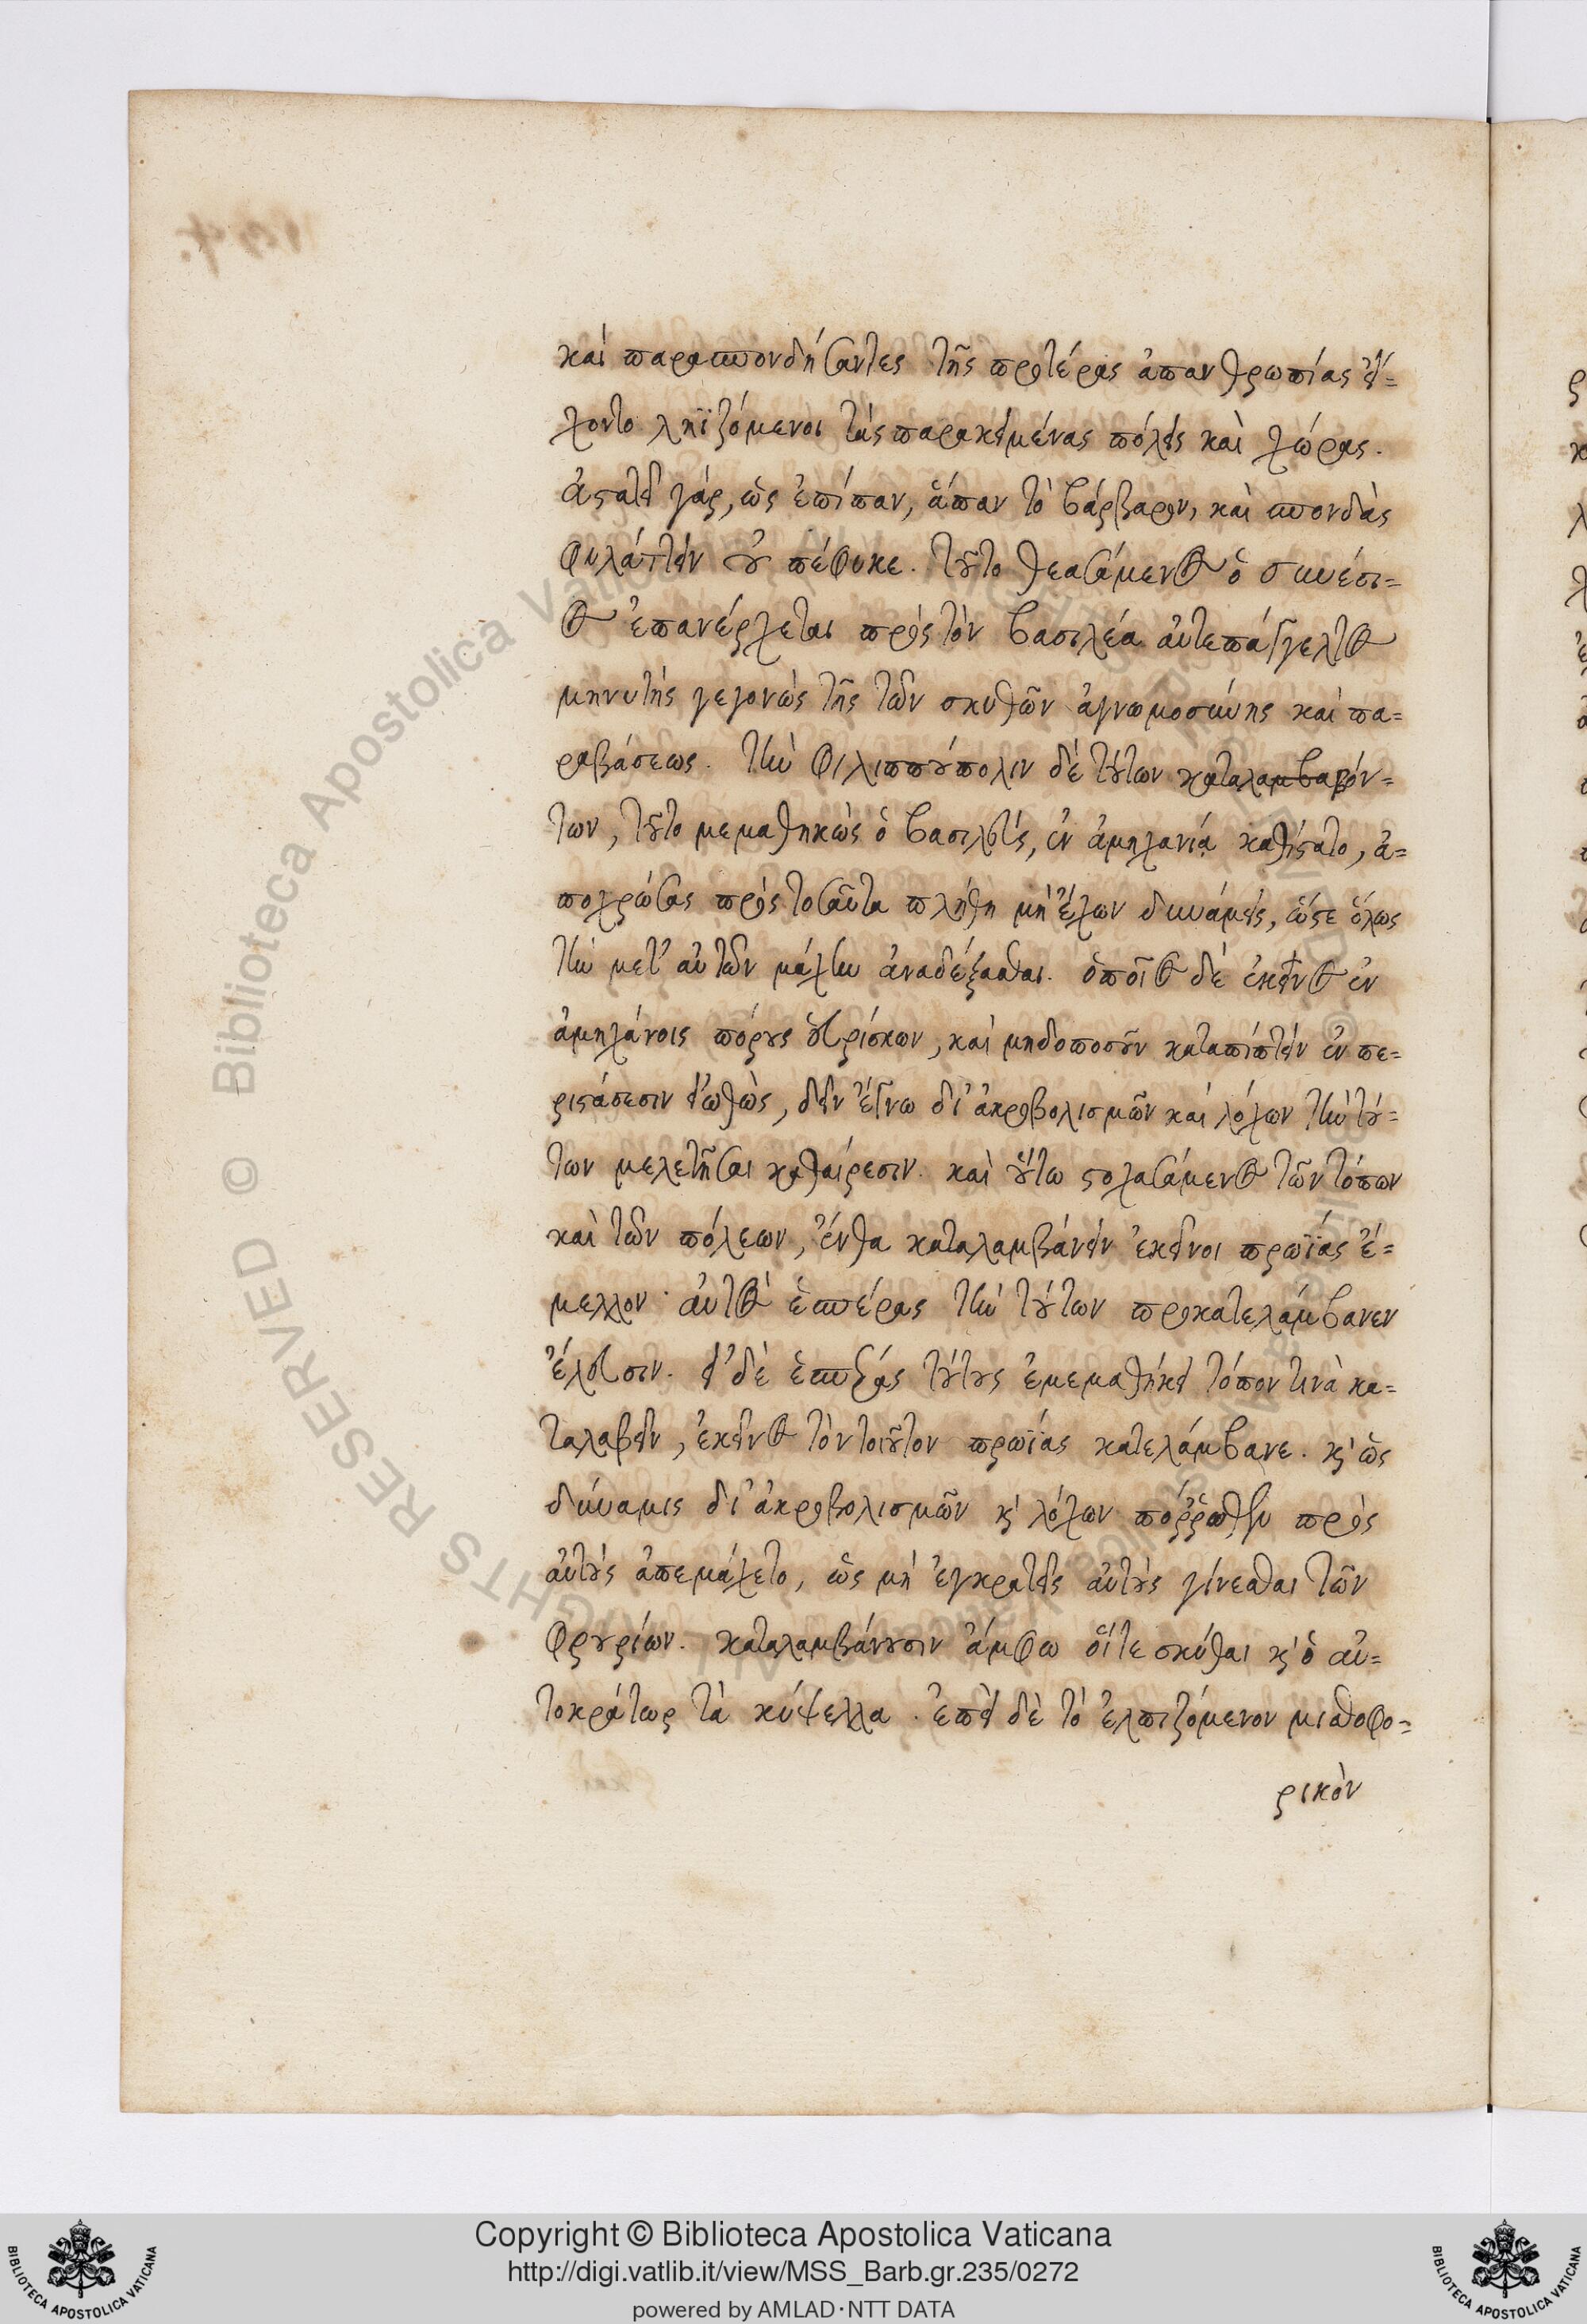 καὶ παρασπονδήσαντες τῆς προτέρας ἀπανθρωπίας εἴ-
χοντο ληϊζόμενοι τὰς παρακειμένας πόλεις καὶ χώρας.
ἀστατεῖ γάρ, ὡς ἐπίπαν, ἅπαν τὸ βάρβαρον, καὶ σπονδὰς
φυλάττειν οὐ πέφυκε. τοῦτο θεασάμενος ὁ συνέσι-
ος ἐπανέρχεται πρὸς τὸν βασιλέα αὐτεπάγγελτος
μηνυτὴς γεγονὼς τῆς τῶν σκυθῶν ἀγνωμοσύνης καὶ πα-
ραβάσεως. τὴν φιλιππούπολιν δὲ τούτων καταλαμβαβόν-
των, τοῦτο μεμαθηκὼς ὁ βασιλεὺς, ἐν ἀμηχανίᾳ καθίστατο, ἀ-
ποχρώσας πρὸς τοσαῦτα πλήθη μὴ ἔχων δυνάμεις, ὥστε ὅλως
τὴν μετ' αὐτῶν μάχην ἀναδέξασθαι. ὁποῖος δὲ ἐκεῖνος ἐν
ἀμηχάνοις πόρους εὑρίσκων, καὶ μηδοποσοῦν καταπίπτειν ἐν πε-
ριστάσεσιν εἰωθὼς, δεῖν ἔγνω δι' ἀκροβολισμῶν καὶ λόχων τὴν τού-
των μελετῆσαι καθαίρεσιν. καὶ οὕτω στοχασάμενος τῶν τόπων
καὶ τῶν πόλεων, ἔνθα καταλαμβάνειν ἐκεῖνοι πρωΐας ἔ-
μελλον· αὐτὸς ἑσπέρας τὴν τούτων προκατελάμβανεν
ἔλευσιν. εἰ δὲ ἑσπέρας τούτους ἐμεμαθήκει τόπον τινὰ κα-
ταλαβεῖν, ἐκεῖνος τὸν τοιοῦτον πρωΐας κατελάμβανε. κ' ὡς
δύναμις δι' ἀκροβολισμῶν κ' λόχων πόρρωθεν πρὸς
αὐτοὺς ἀπεμάχετο, ὡς μὴ ἐγκρατεῖς αὐτοὺς γίνεσθαι τῶν
φρουρίων. καταλαμβάνουσιν ἄμφω οἵτε σκύθαι κ' ὁ αὐ-
τοκράτωρ τὰ κύψελλα. ἐπεὶ δὲ τὸ ἐλπιζόμενον μισθοφο-
ρικὸν